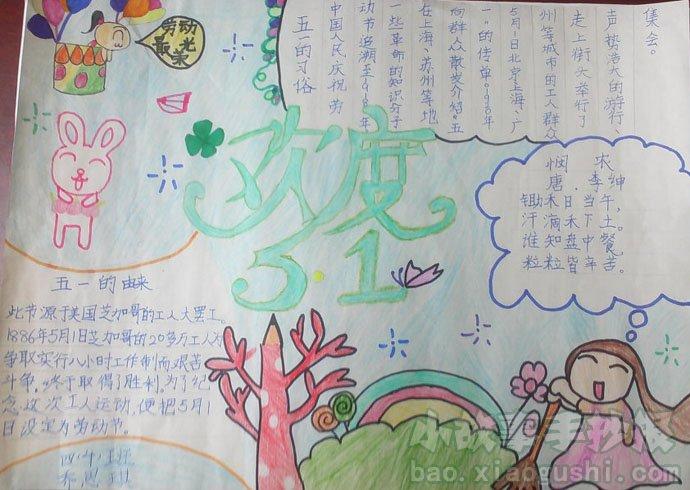 劳动
最光荣
五一的习俗
中国人民庆祝劳
动节追溯至1918年
一些革命的知识分子
在上海、苏州等地
向群众散发介绍“五
一”的传单。1920年
5月1日北京、上海、广
州等城市的工人群众
走上街大举行了
声势浩大的游行、
集会。
欢度
5·1
悯 农
唐.李绅
锄禾日当午,
汗滴禾下土。
维知盘中餐
粒粒皆辛苦。
五一的由来
此节源于美国芝加哥的工人大罢工。
1886年5月1日芝加哥的20多万工人为
争取实行八小时工作制而艰苦
斗争,终于取得了胜利,为了纪
念这次工人运动,便把5月1
日设定为劳动节。
四班
小故事手抄报
bao.xiaogushi.com